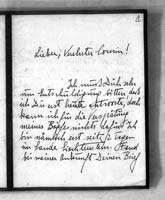 Lieber, verehrter Cousin!
Ich muß Dich sehr
um Entschuldigung bitten daß
ich Dir erst heute antworte, doch
kann ich für die Verspätung
meines Briefes nichts dafür. Ich
bin nämlich erst seit
im Lande
bei meiner Ankunft Deinen Brief